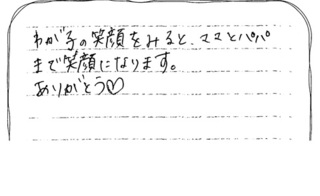 わが子の笑顔をみると、ママとパパ
まで笑顔になります。
ありがとう♡